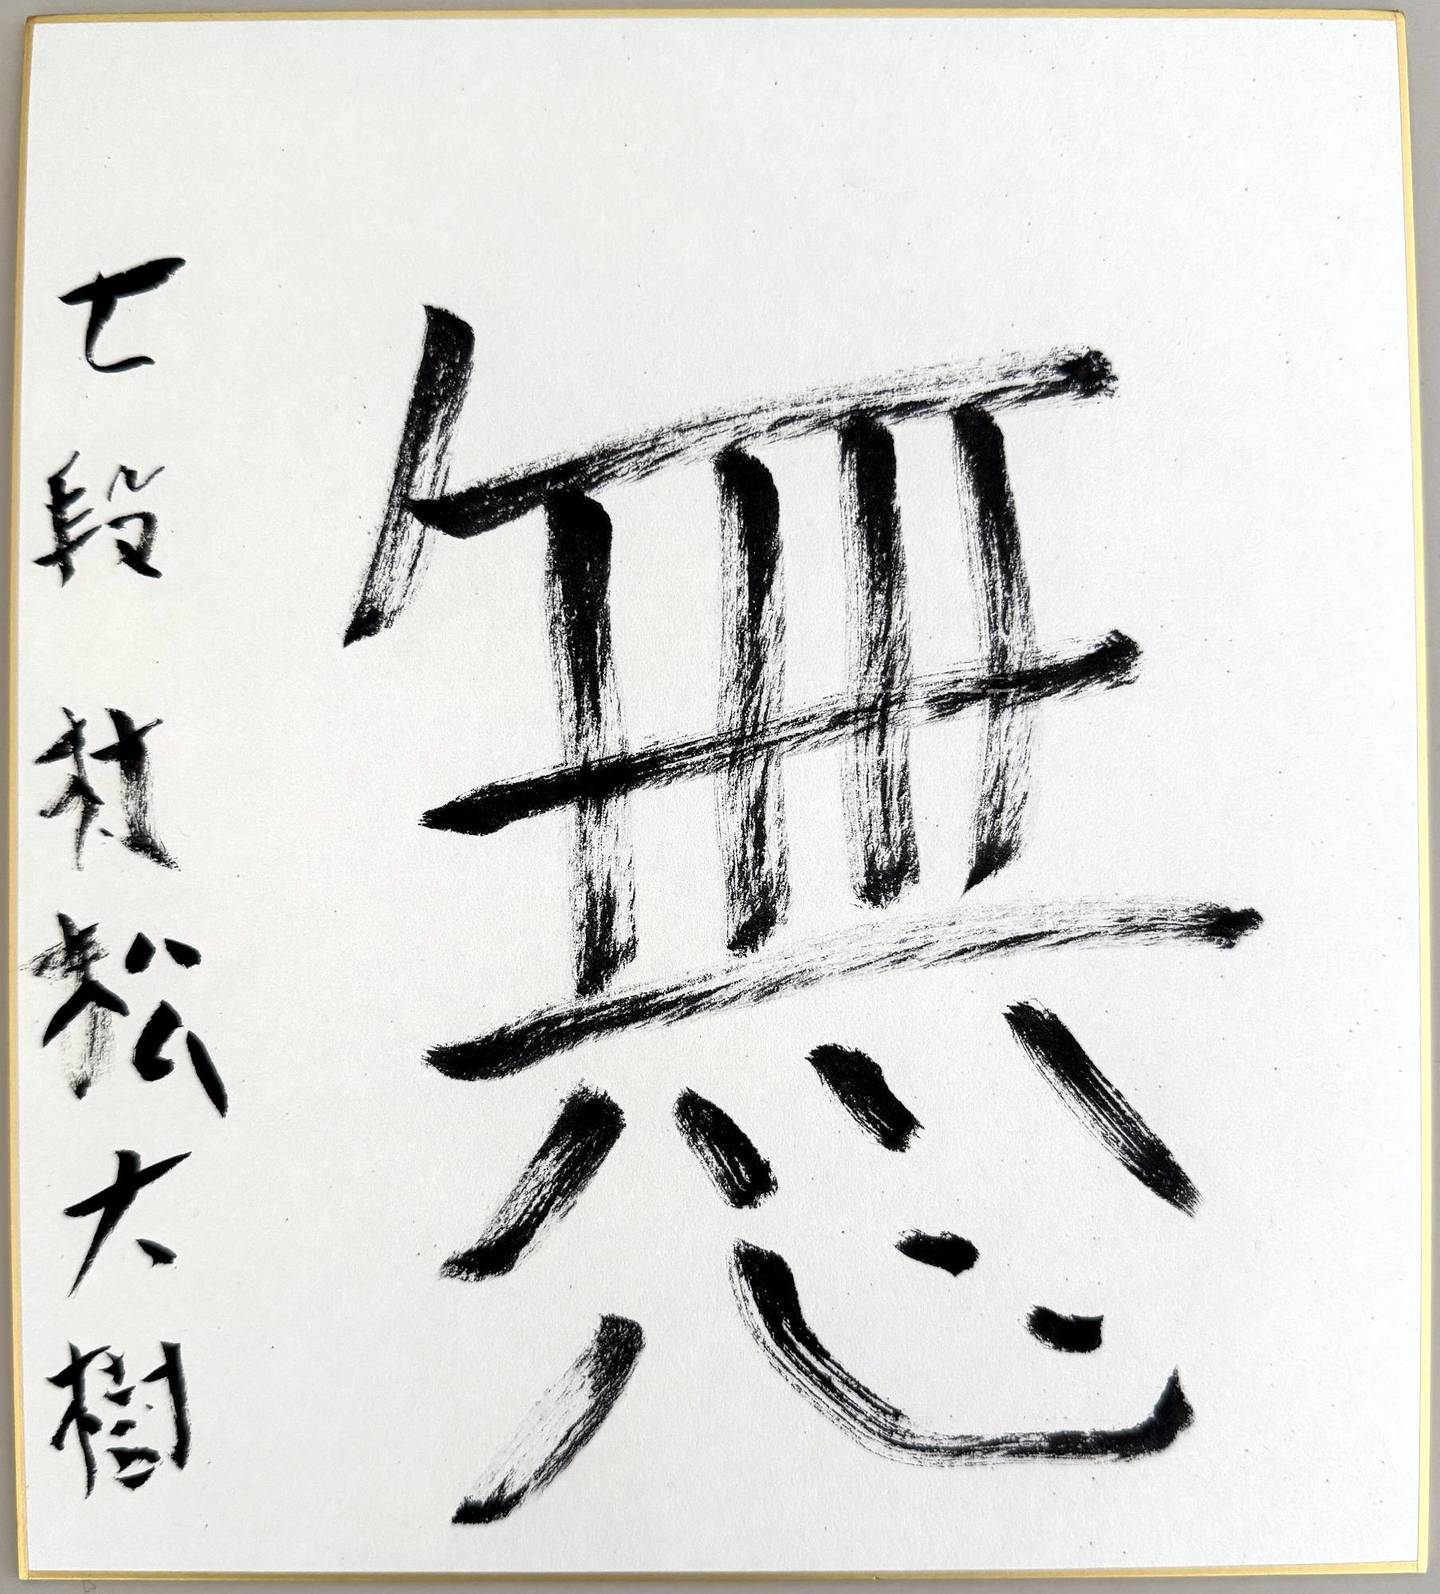 無心
七段 村松大樹